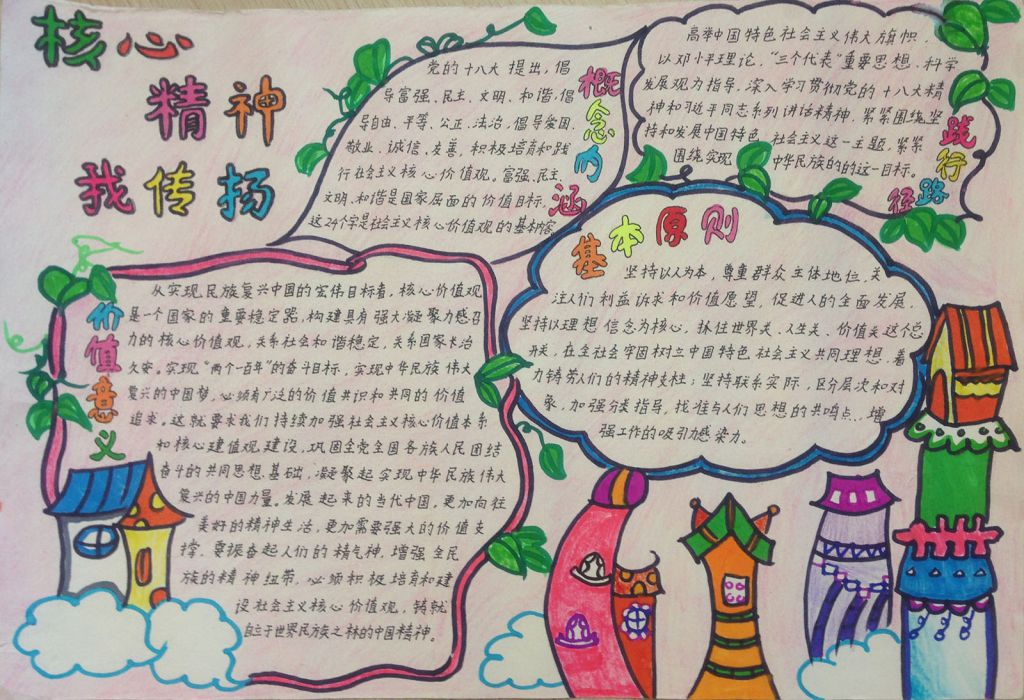 核心
精神
我传扬
概念内涵
党的十八大提出,倡
导富强、民主、文明、和谐,倡
导自由、平等、公正、法治,倡导爱国、
敬业、诚信、友善,积极培育和践
行社会主义核心价值观。富强、民主、
文明、和谐是国家层面的价值目标,
这24个字是社会主义核心价值观的基本内容。
践行路径
高举中国特色社会主义伟大旗帜,
以邓小平理论,“三个代表”重要思想、科学
发展观为指导,深入学习贯彻党的十八大精
神和习近平同志系列讲话精神,紧紧围绕坚
持和发展中国特色社会主义这一主题,紧紧
围绕实现中华民族的的这一目标。
基本原则
坚持以人为本,尊重群众主体地位,关
注人们利益诉求和价值愿望,促进人的全面发展,
坚持以理想信念为核心,抓住世界关、人生关、价值关这个总
开关,在全社会牢固树立中国特色社会主义共同理想,着
力铸劳人们的精神支柱;坚持联系实际,区分层次和对
象,加强分类指导,找准与人们思想的共鸣点,增
强工作的吸引力感染力。
价值意义
从实现民族复兴中国的宏伟目标看,核心价值观
是一个国家的重要稳定器,构建具有强大凝聚力感召
力的核心价值观,关系社会和谐稳定,关系国家长治
久安。实现“两个一百年”的奋斗目标,实现中华民族伟大
复兴的中国梦,必须有广泛的价值共识和共同的价值
追求。这就要求我们持续加强社会主义核心价值体系
和核心建值观建设,巩固全党全国各族人民团结
奋斗的共同思想基础,凝聚起实现中华民族伟大
复兴的中国力量。发展起来的当代中国,更加向往
美好的精神生活,更加需要强大的价值支
撑。要振奋起人们的精气神,增强全民
族的精神纽带,必须积极培育和建
设社会主义核心价值观,铸就
自立于世界民族之林的中国精神。